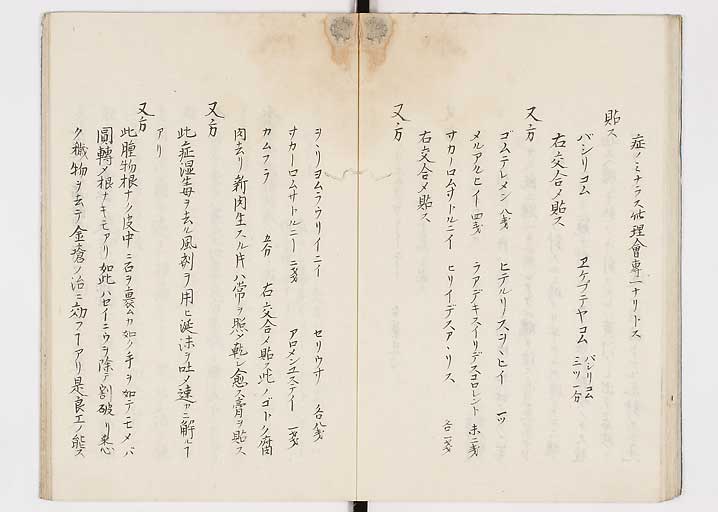 症ノミナラス此理會専一ナリトス
貼ス
バシリコム　ヱケプテヤコム　バシリコム三ツ一分
右交合〆貼ス
又方
ゴムテレメン 八戔　ヒデルリノスヲヽヒイ 一ツ
メルアルヒイ 四戔　ラアデキスイリデスゴロレント 末二戔
サカーロムサトルニイ　ヒリイデスアヽリス 各一戔
右交合〆貼ス
又方
ヲヽリヨムラウリイニイ　セリウサ 各八戔
サカーロムサトルニー 二戔　アロメンユステイ 一戔
カムフラ 五分　右交合〆貼ス此ノゴトク腐
肉去リ新肉生スル片ハ常ヲ照〆乾シ愈ス膏ヲ貼ス
又方
此症湿毒ヲ去ル風剤ヲ用ヒ涎沫ヲ吐〆速カニ解ルヿ
アリ
又方
此腫物根ナク皮中ニ石ヲ裏ムカ如ク手ヲ如テモメバ
圓轉〆根ナキモアリ如此ハセイニウヲ除テ割破リ悪
ク穢物ヲ去テ金瘡ノ治ニ効フヿアリ是良工ノ能ス